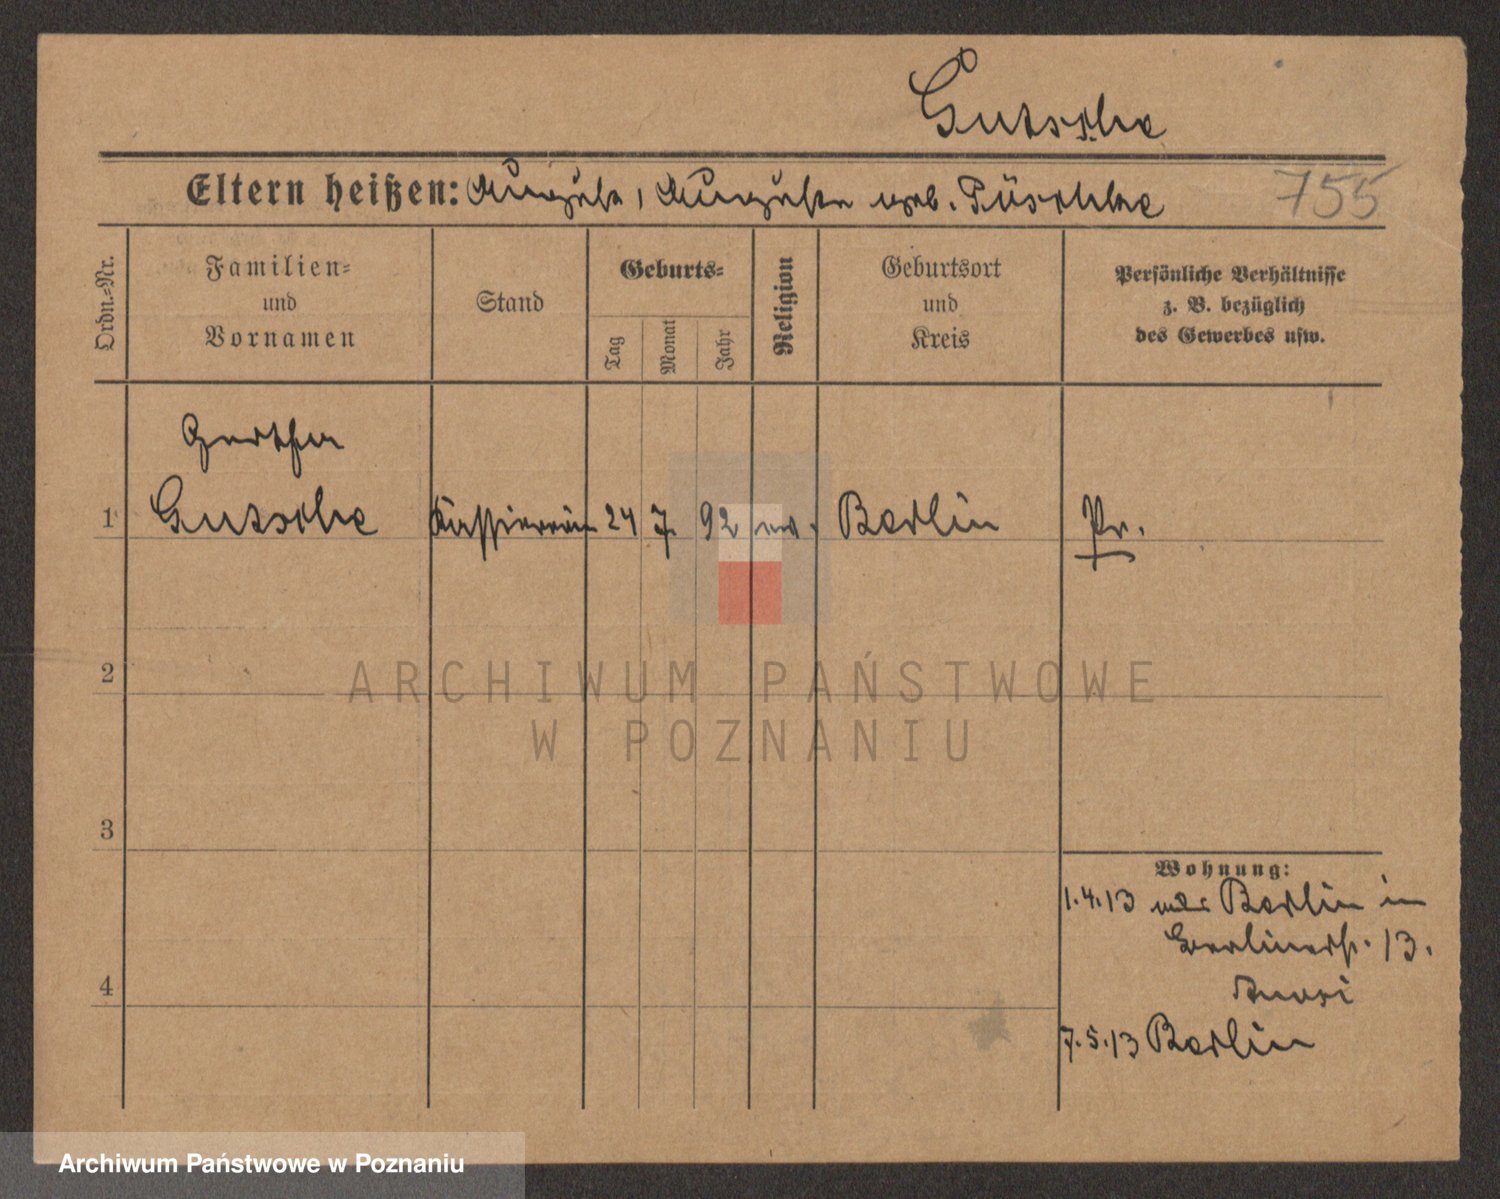 Gutsche
Eltern heißen: August, Auguste geb. Püschke
755
Ordn.=Nr.
Familien=
und
Vornamen
Stand
Geburts=
Tag
Monat
Jahr
Religion
Geburtsort
und
Kreis
Persönliche Verhältnisse
z. B. bezüglich
des Gewerbes usw.
1
Gutsche
Kassiererin
24
7.
92
ev.
Berlin
Pr.
2
3
4
Wohnung:
1.4.13 Berlin in
Berlinerst. 13.
7.5.13 Berlin
ARCHIWUM PAŃSTWOWE
W POZNANIU
Archiwum Państwowe w Poznaniu